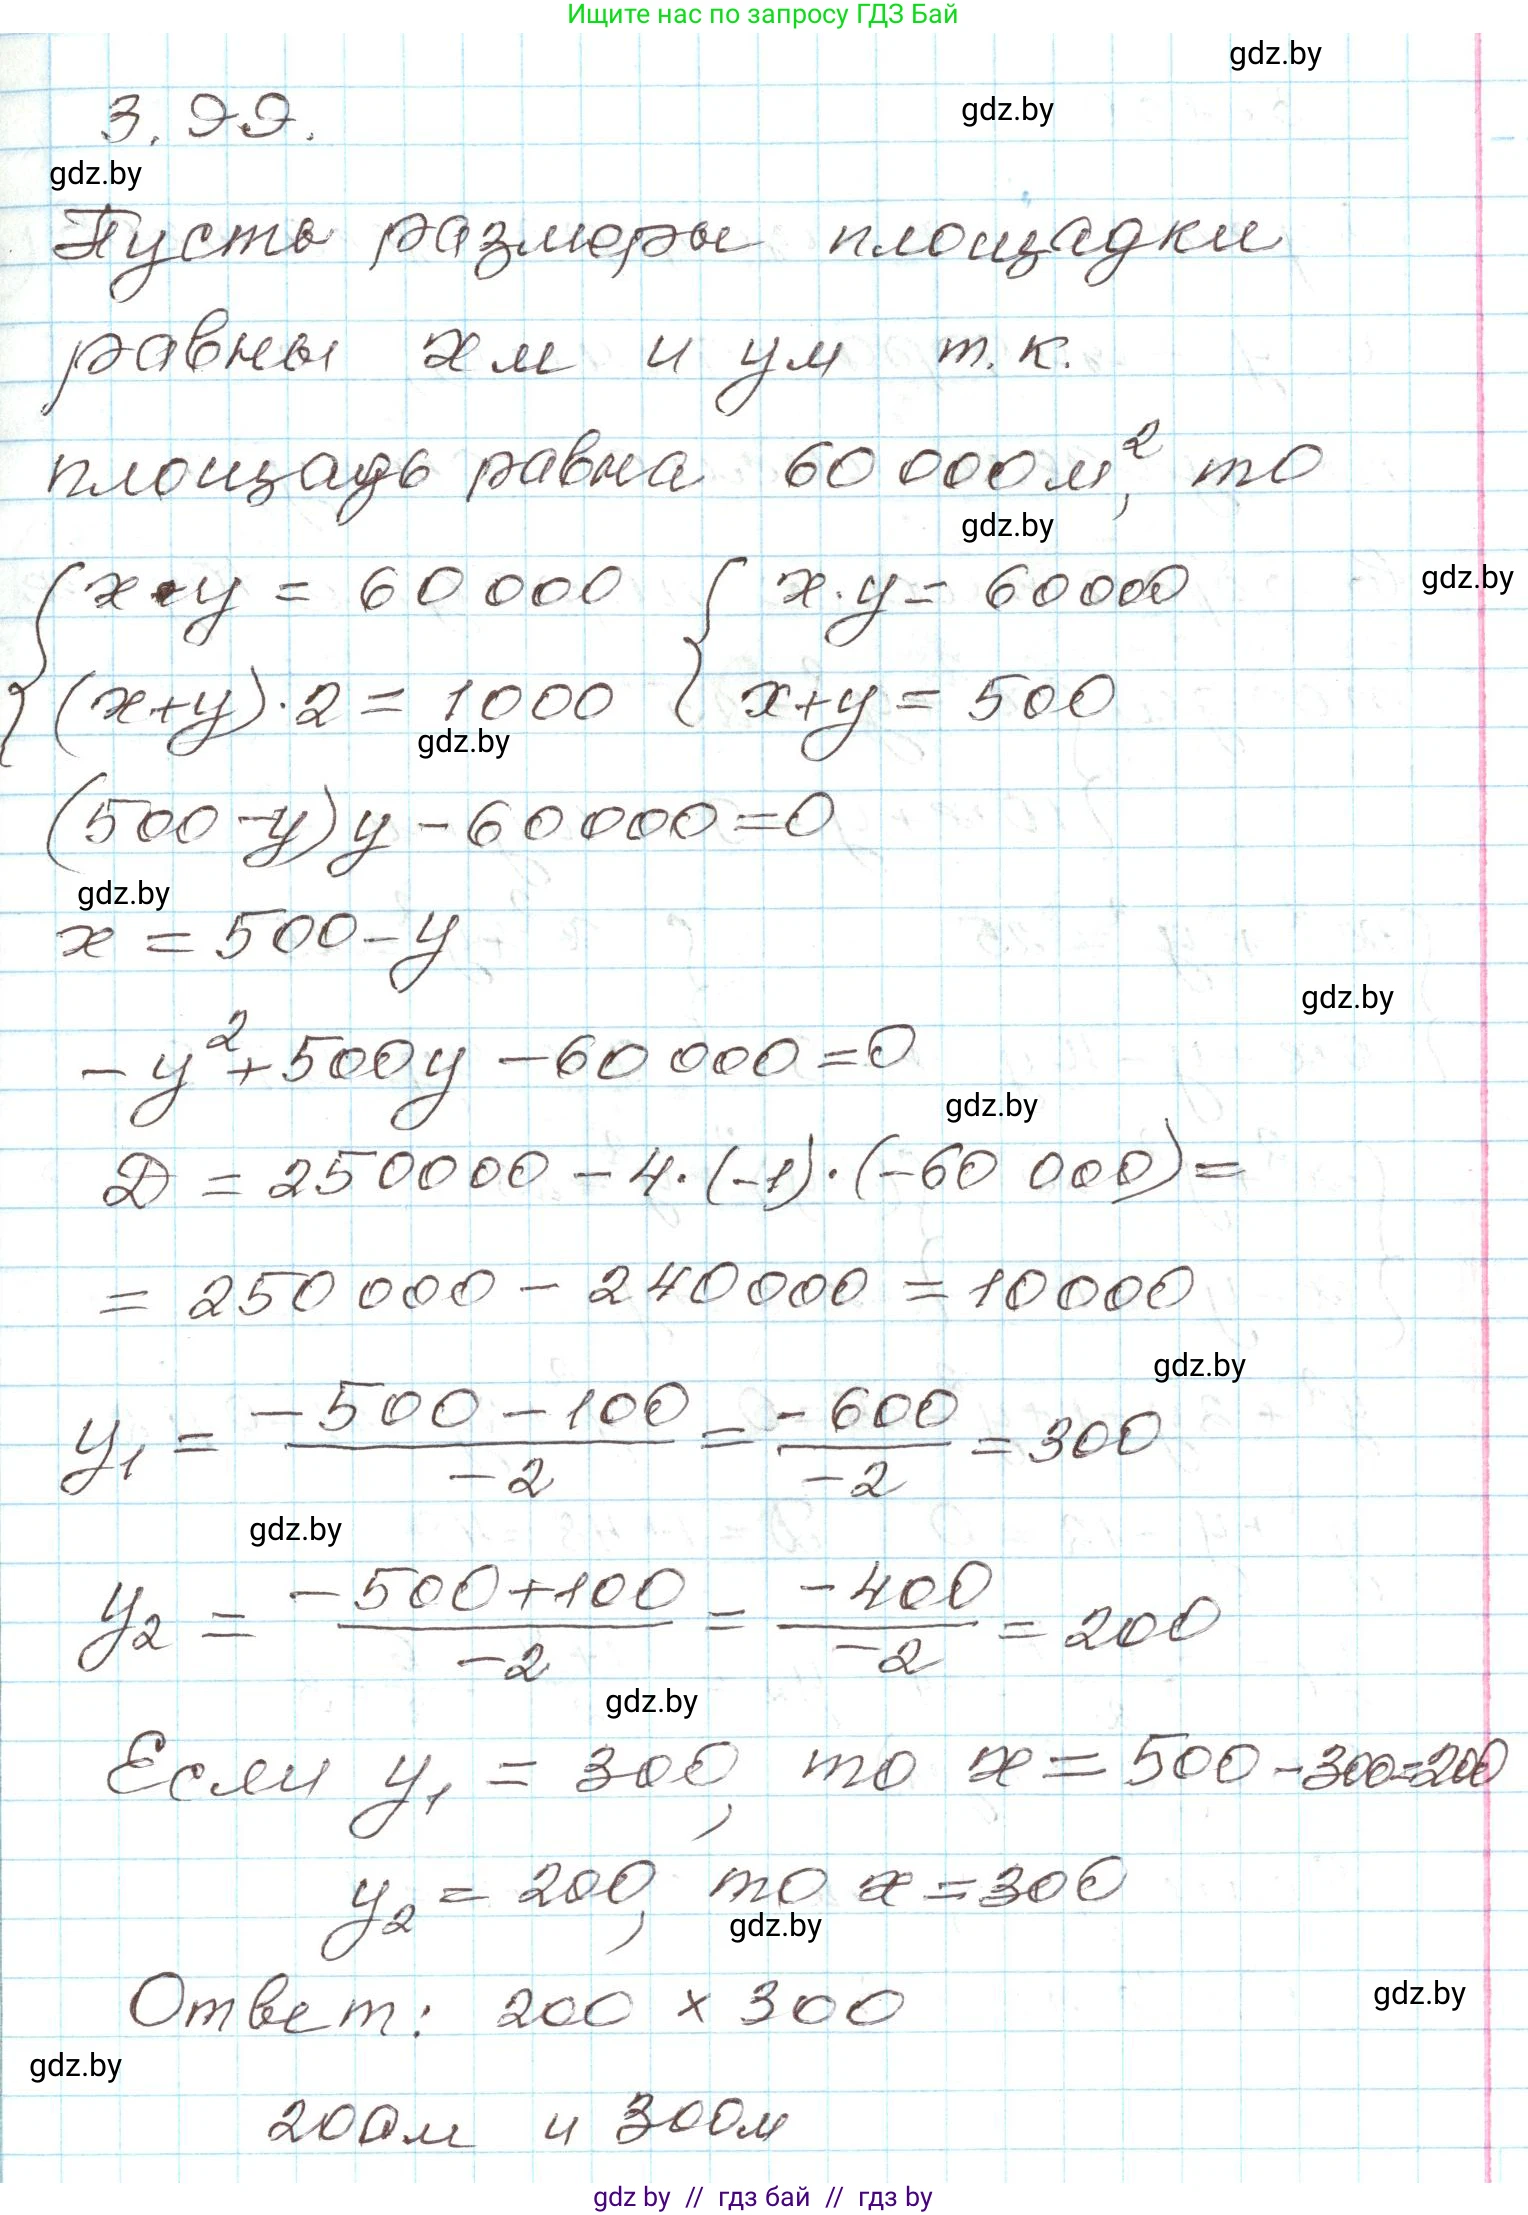 Ищите нас по запросу ГДЗ Бай
gdz.by
3.99.
gdz.by
gdz.by
Пусть размеры площадки
равны x м и y м т.к.
площадь равна 60 000 м², то
gdz.by
{ x·y = 60 000 { x·y = 60000
gdz.by
(x+y)·2 = 1000 x+y = 500
gdz.by
(500-y)y - 60000 = 0
gdz.by
x = 500 - y
gdz.by
-y² + 500y - 60 000 = 0
gdz.by
D = 250000 - 4·(-1)·(-60 000) =
= 250 000 - 240000 = 10000
gdz.by
y₁ = (-500 - 100)/(-2) = (-600)/(-2) = 300
gdz.by
y₂ = (-500+100)/(-2) = (-400)/(-2) = 200
gdz.by
Если y₁ = 300, то x = 500 - 300=200
y₂ = 200, то x = 300
gdz.by
Ответ: 200 x 300
gdz.by
gdz.by
200м и 300м
gdz by // гдз бай // гдз by